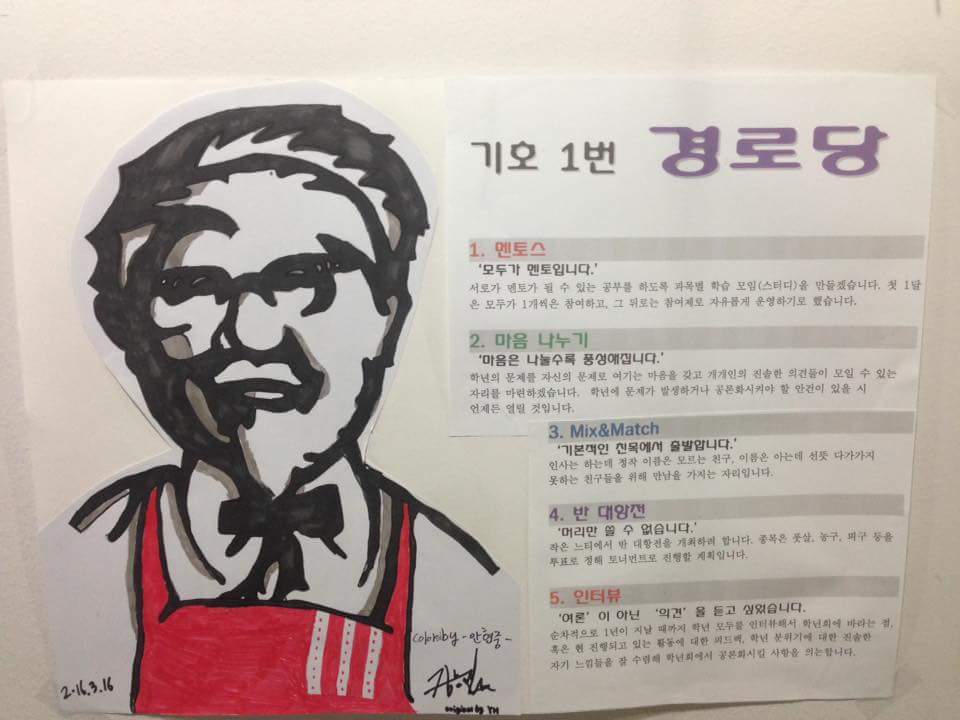 기호 1번 경로당
1. 멘토스
'모두가 멘토입니다.'
서로가 멘토가 될 수 있는 공부를 하도록 과목별 학습 모임(스터디)을 만들겠습니다. 첫 1달
은 모두가 1개씩은 참여하고, 그 뒤로는 참여제로 자유롭게 운영하기로 했습니다.
2. 마음 나누기
'마음은 나눌수록 풍성해집니다.'
학년의 문제를 자신의 문제로 여기는 마음을 갖고 개개인의 진솔한 의견들이 모일 수 있는
자리를 마련하겠습니다. 학년에 문제가 발생하거나 공론화시켜야 할 안건이 있을 시
언제든 열릴 것입니다.
3. Mix&Match
'기본적인 친목에서 출발합니다.'
인사는 하는데 정작 이름은 모르는 친구, 이름은 아는데 선뜻 다가가지
못하는 친구들을 위해 만남을 가지는 자리입니다.
4. 반 대항전
'머리만 쓸 수 없습니다.'
작은 느티에서 반 대항전을 개최하려 합니다. 종목은 풋살, 농구, 피구 등을
투표로 정해 토너먼트로 진행할 계획입니다.
5. 인터뷰
'여론'이 아닌 '의견'을 듣고 싶었습니다.
순차적으로 1년이 지날 때까지 학년 모두를 인터뷰해서 학년회에 바라는 점,
혹은 현 진행되고 있는 활동에 대한 피드백, 학년 분위기에 대한 진솔한
자기 느낌들을 잘 수렴해 학년회에서 공론화시킬 사항을 의논합니다.
colors by - 안형준 -
original by YH
2.16.3.16